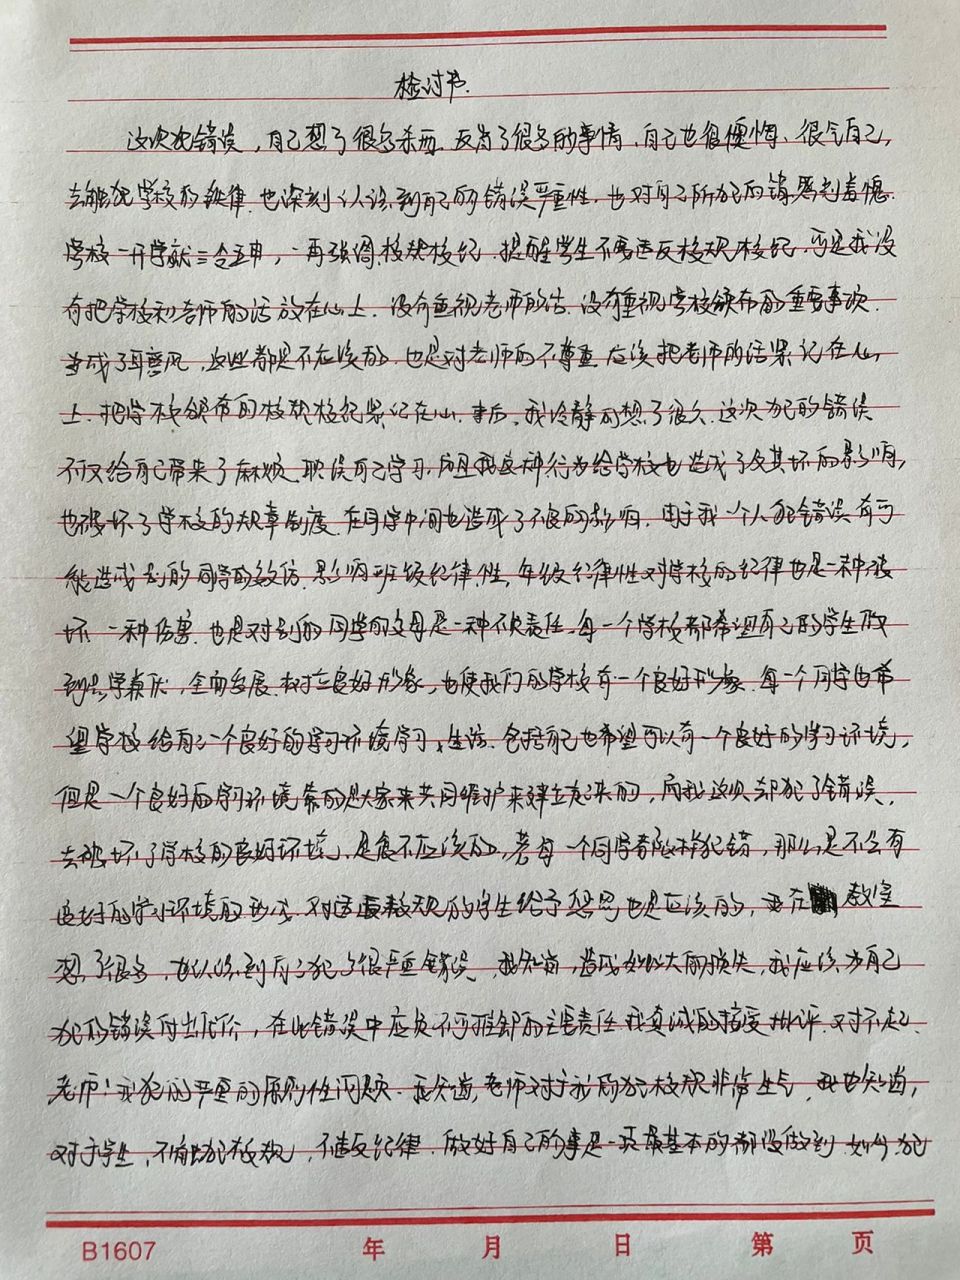 检讨书.
这次次错误，自己想了很多东西，反省了很多的事情，自己也很懊悔、很气自己，
去触犯学校的纪律，也深刻认识到自己的错误严重性，也对自己所犯的错感到羞愧.
学校一开学就三令五申，一再强调，校规校纪，提醒学生不要违反校规校纪，而是我没
有把学校和老师的话放在心上，没有重视老师的话，没有重视学校颁布的重要事项.
当成了耳旁风，这些都是不应该的，也是对老师的不尊重，应该把老师的话紧记在心
上，把学校颁布的校规校纪紧记在心，事后，我冷静的想了很久，这次犯的错误
不仅给自己带来了麻烦，耽误自己学习，而且我这种行为给学校也造成了及其坏的影响，
也破坏了学校的规章制度，在同学中间也造成了不良的影响，由于我一个人犯错误有可
能造成别的同学的效仿，影响班级纪律性，年级纪律性，对学校的纪律也是一种破
坏，一种伤害，也是对别的同学的父母是一种不负责任，每一个学校都希望自己的学生做
到品学兼优，全面发展，树立良好形象，也使我们的学校有一个良好形象，每一个同学也希
望学校给自己一个良好的学习环境学习，生活，包括自己也希望可以有一个良好的学习环境，
但是一个良好的学习环境靠的是大家来共同维护来建立起来的，而我这次却犯了错误，
去破坏了学校的良好环境，是很不应该的，若每一个同学都这样犯错，那么是不会有
良好的学习环境的形成，对违反校规的学生给予惩罚也是应该的，我在教室
想了很多，也认识到自己犯了很严重错误，我知道，造成如此大的损失，我应该为自己
犯的错误付出代价，在此错误中应负不可推卸的主要责任，我真诚的接受批评，对不起，
老师！我犯的严重的原则性问题，我知道，老师对于我所犯校规非常生气，我也知道，
对于学生，不触犯校规，不违反纪律，做好自己的事是一项最基本的都没做到，如今，犯
B1607 年 月 日 第 页